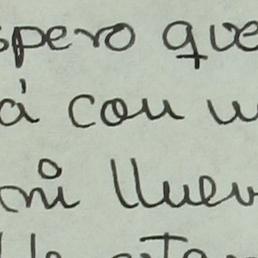 spero que
á con u
mi lluev